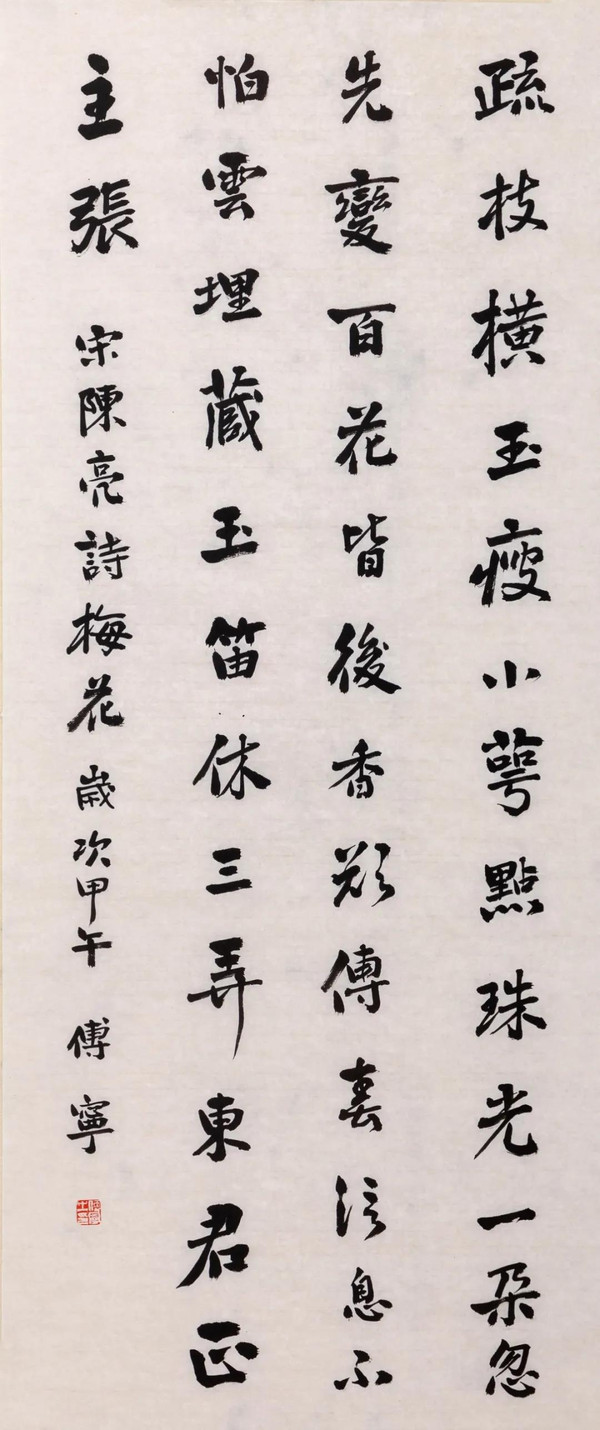 疏枝橫玉瘦小萼點珠光一朵忽
先變百花皆後香欲傳春信息不
怕雲埋藏玉笛休三弄東君正
主張 宋陳亮詩梅花 歲次甲午 傅寧